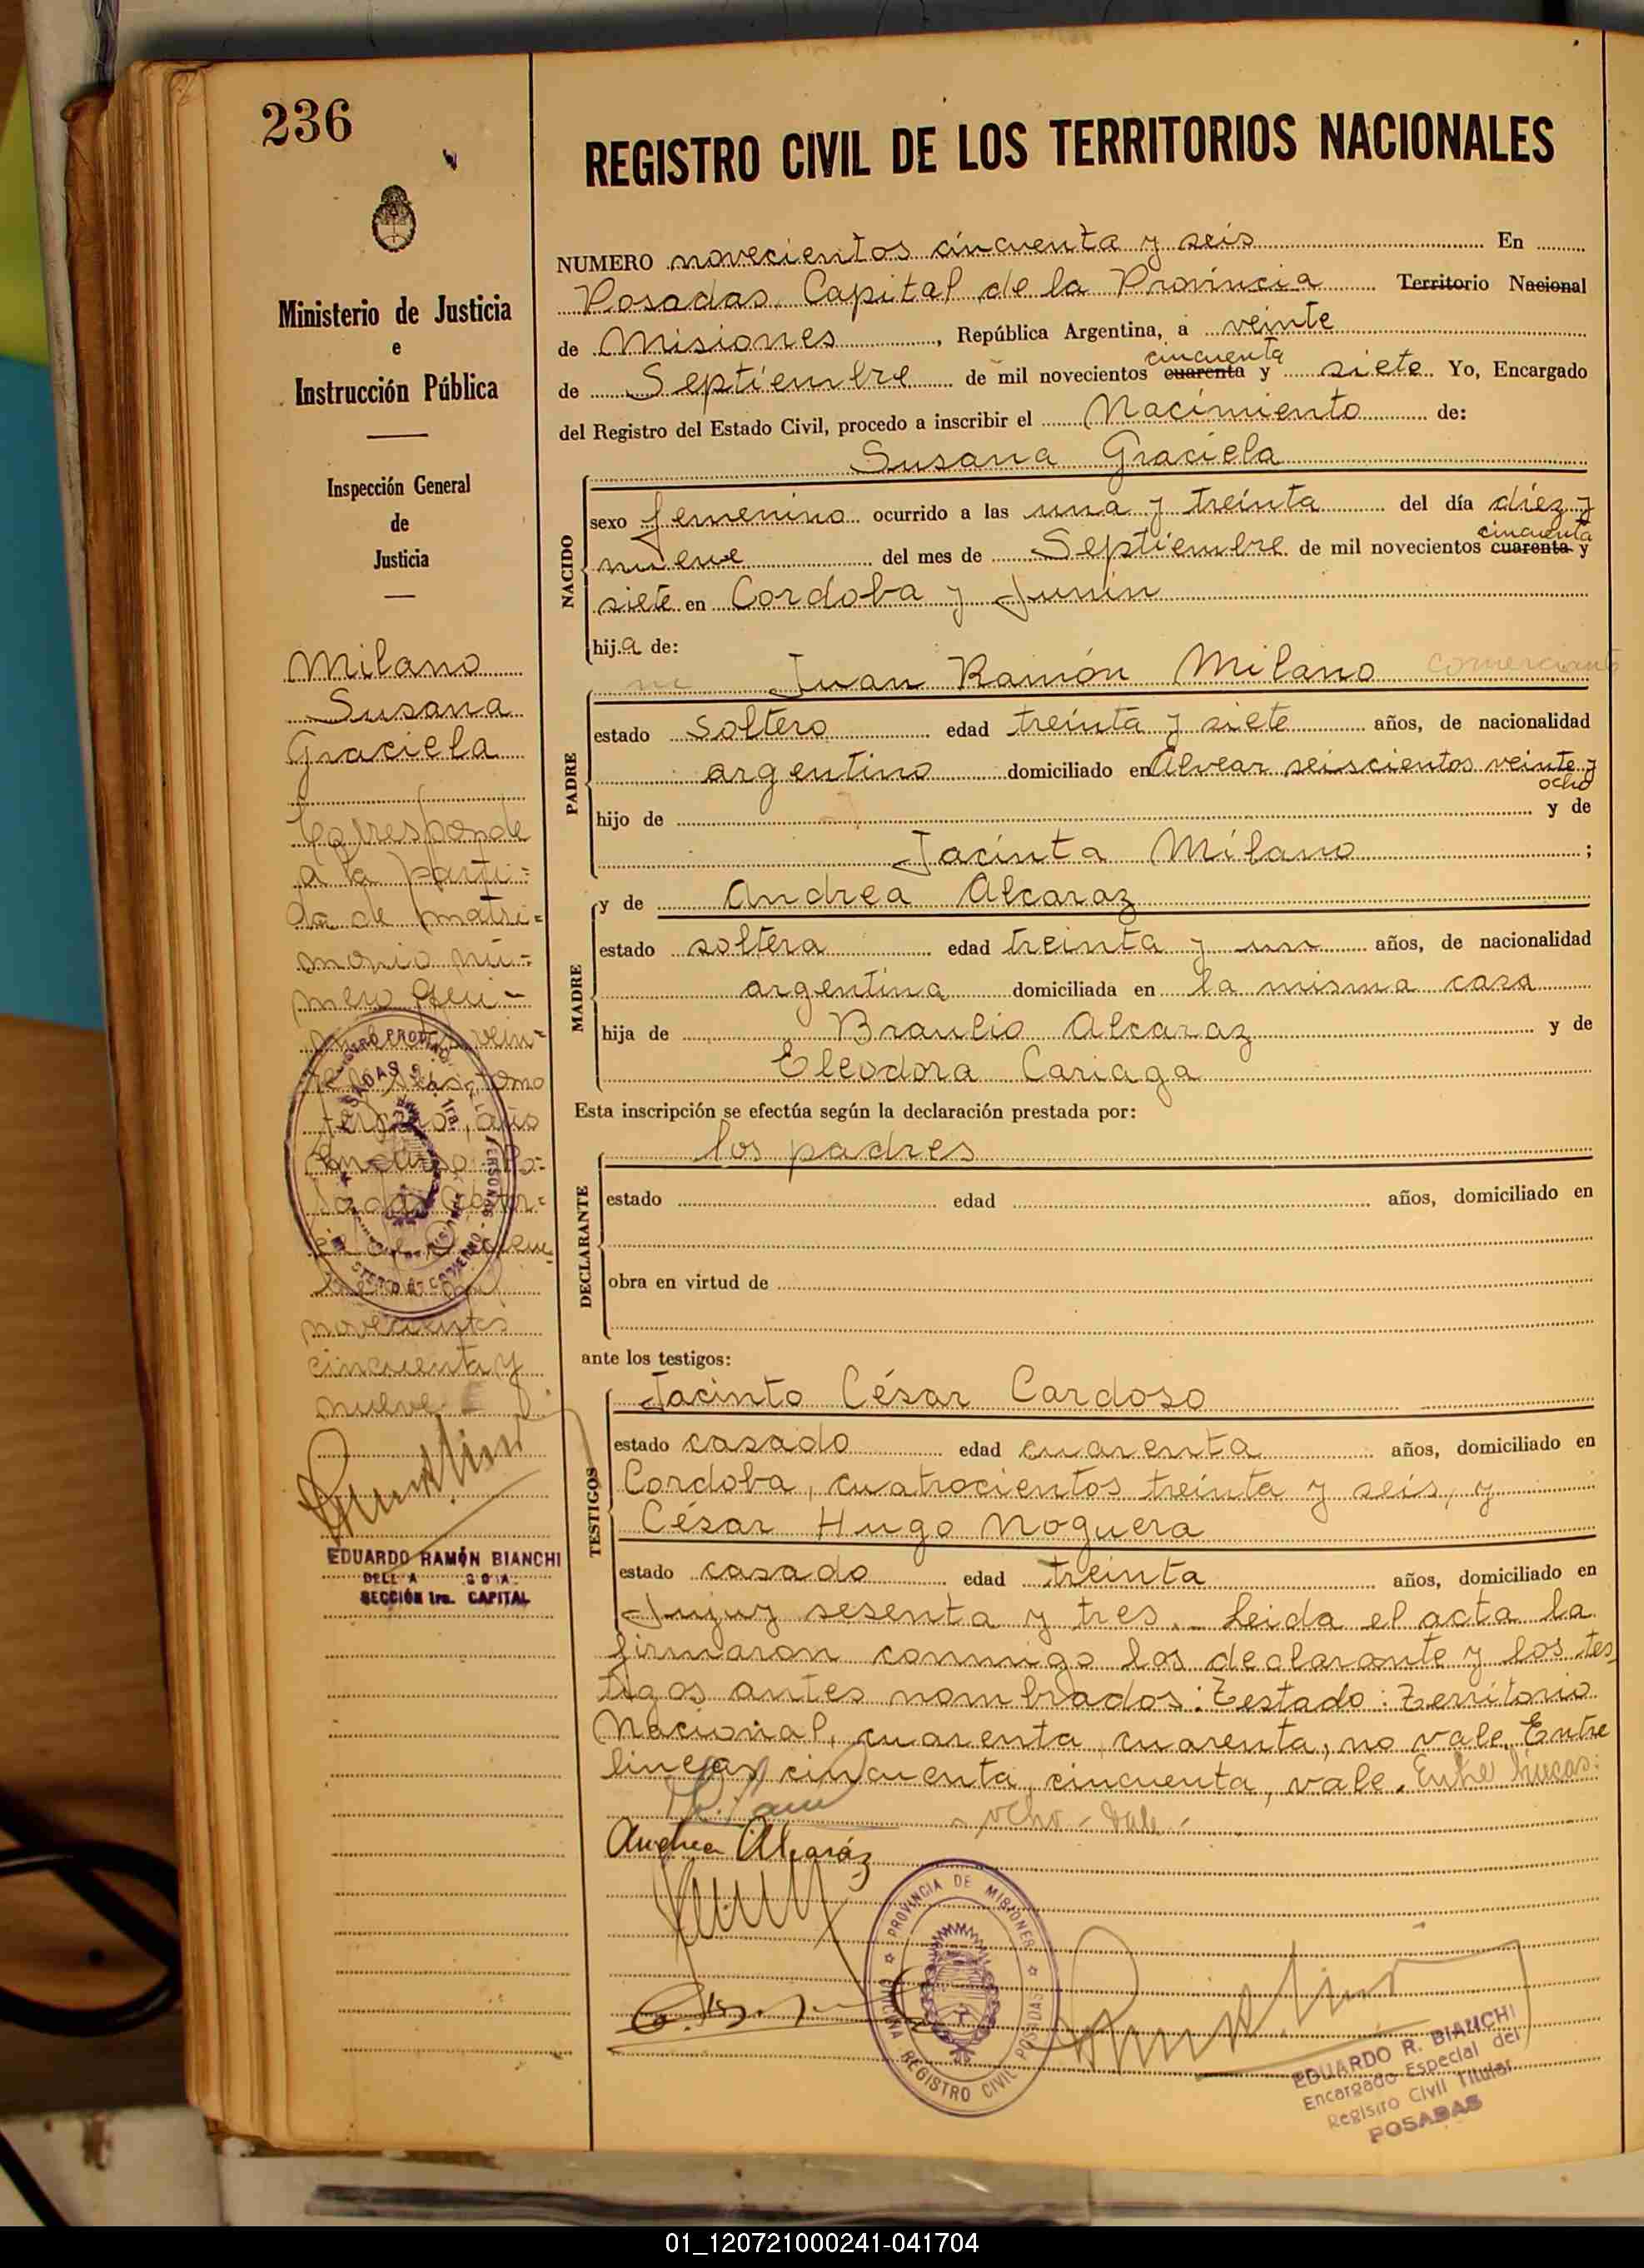 236
Ministerio de Justicia
e
Instrucción Pública
Inspección General
de
Justicia
Milano
Susana
Graciela
Corresponde
a la parti-
da de matri-
monio nú-
mero quin-
vein-
tomo
tercero, año
novecientos
cincuenta y
nueve
EDUARDO RAMÓN BIANCHI
SECCIÓN 1ra. CAPITAL
REGISTRO CIVIL DE LOS TERRITORIOS NACIONALES
NUMERO novecientos cincuenta y seis En
Posadas, Capital de la Provincia Territorio Nacional
de Misiones, República Argentina, a veinte
cincuenta
de Septiembre de mil novecientos cuarenta y siete Yo, Encargado
del Registro del Estado Civil, procedo a inscribir el Nacimiento de:
Susana Graciela
NACIDO
sexo femenino ocurrido a las una y treinta del día diez y
cincuenta
nueve del mes de Septiembre de mil novecientos cuarenta y
siete en Cordoba y Junin
hija de:
PADRE
Juan Ramón Milano comerciante
estado soltero edad treinta y siete años, de nacionalidad
argentino domiciliado en Alvear seiscientos veinte y
ocho
hijo de y de
Jacinta Milano ;
MADRE
y de Andrea Alcaraz
estado soltera edad treinta y un años, de nacionalidad
argentina domiciliada en la misma casa
hija de Braulio Alcaraz y de
Eleodora Cariaga
Esta inscripción se efectúa según la declaración prestada por:
los padres
DECLARANTE
estado edad años, domiciliado en
obra en virtud de
ante los testigos:
TESTIGOS
Jacinto César Cardoso
estado casado edad cuarenta años, domiciliado en
Cordoba, cuatrocientos treinta y seis, y
César Hugo Noguera
estado casado edad treinta años, domiciliado en
Jujuy sesenta y tres. Leida el acta la
firmaron conmigo los declarante y los tes
tigos antes nombrados: Testado: Territorio
Nacional, cuarenta, cuarenta, no vale. Entre
lineas cincuenta, cincuenta, vale. Entre lineas:
ocho - vale -
Andrea Alcaráz
PROVINCIA DE MISIONES
OFICINA REGISTRO CIVIL POSADAS
EDUARDO R. BIANCHI
Encargado Especial del
Registro Civil Titular
POSADAS
01_120721000241-041704